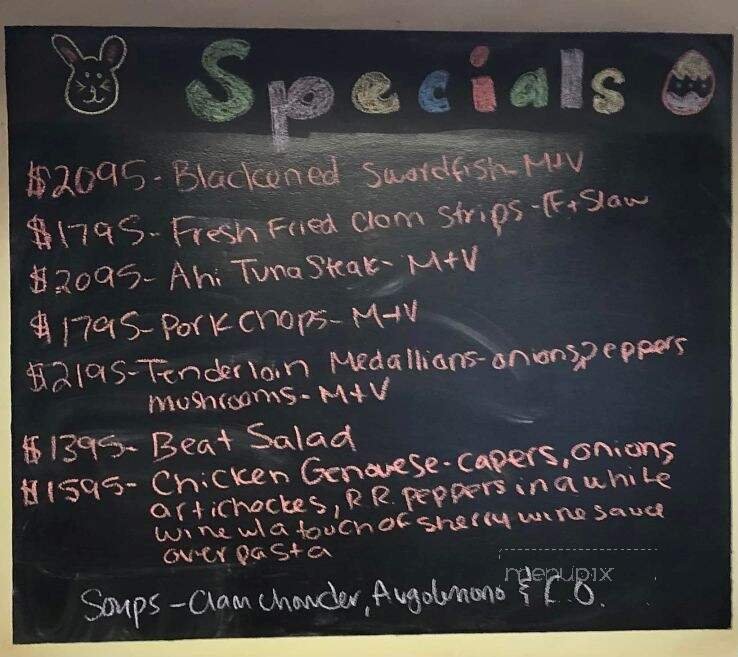 Specials
$2095- Blackened Swordfish- M+V
$1795- Fresh Fried Clam Strips- FF+Slaw
$2095- Ahi Tuna Steak- M+V
$1795- Pork Chops- M+V
$2195- Tenderloin Medallians- onions, peppers
mushrooms- M+V
$1395- Beat Salad
$1595- Chicken Genovese- capers, onions
artichockes, R.R. peppers in a white
wine w/ a touch of sherry wine sauce
over pasta
menupix
Soups - Clam Chowder, Avgolemono & F.O.